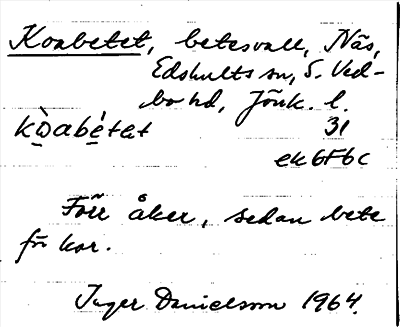 Koabetet, betesvall, Näs,
Edshults sn, S. Ved-
bo hd, Jönk. l.
kòabétat 31
ek 6F6c
Förr åker, sedan bete
för kor.
Inger Danielsson 1964.